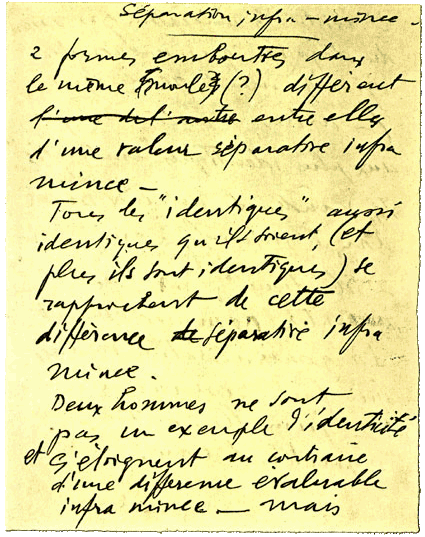 Séparation infra-mince.
2 formes embouties dans
le même moule (?) diffèrent
l'une de l'autre entre elles
d'une valeur séparative infra
mince –
Tous les "identiques" aussi
identiques qu'ils soient, (et
plus ils sont identiques) se
rapprochent de cette
différence séparative infra
mince.
Deux hommes ne sont
pas un exemple d'identicité
et s'éloignent au contraire
d'une différence évaluable
infra mince – mais